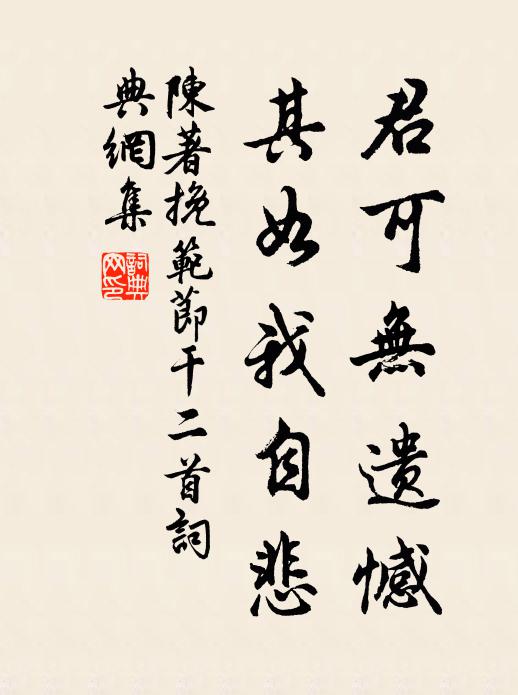 君可無遺憾
其如我自悲
陳著挽範節干二首詞
典網集
詞典
网印